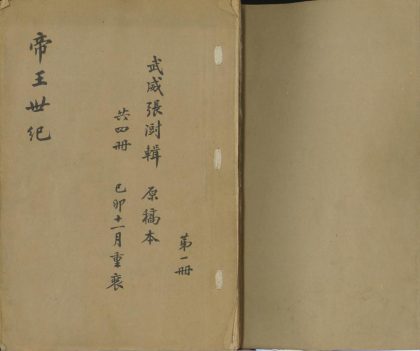 帝王世紀
武威張澍輯 原稿本
共四冊 己卯十一月重裝
第一冊